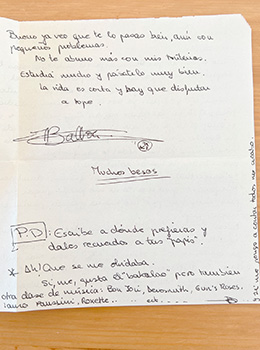 Bueno ya veo que te lo pasas bien, aún con
pequeños problemas.
No te aburro más con mis
Estudia mucho y pásatelo muy bien.
La vida es corta y hay que disfrutar
a tope.
Muchos besos
P.D: Escribe a dónde prefieras y
dales recuerdos a tus "papis".
* Ah! Que se me olvidaba.
Sí, me gusta el "bakalao" pero también
otra clase de música: Bon Jovi, Aerosmith, Gun's Roses,
Laura Paussini, Roxette... etc...
y si me pongo a contar todos no acabo